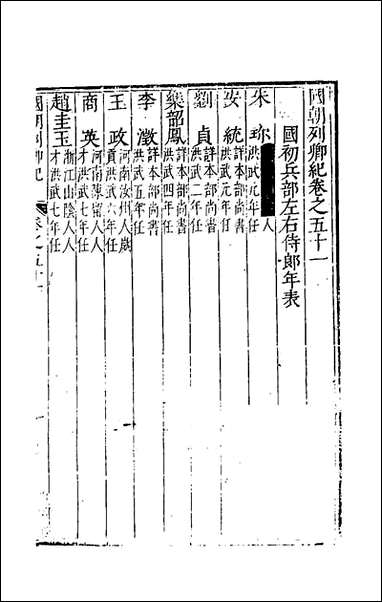 國朝列卿紀卷之五十一
國初兵部左右侍郎年表
朱珎 人
洪武元年任
安統 詳本部尚書
洪武元年任
劉貞 詳本部尚書
洪武二年任
樂韶鳳 詳本部尚書
洪武四年任
李澂 詳本部尚書
洪武五年任
王政 河南汝州人歲
貢洪武六年任
商英 河南陳留人人
才洪武七年任
趙圭玉 浙江山陰人人
才洪武七年任
國朝列卿紀 卷之五十一